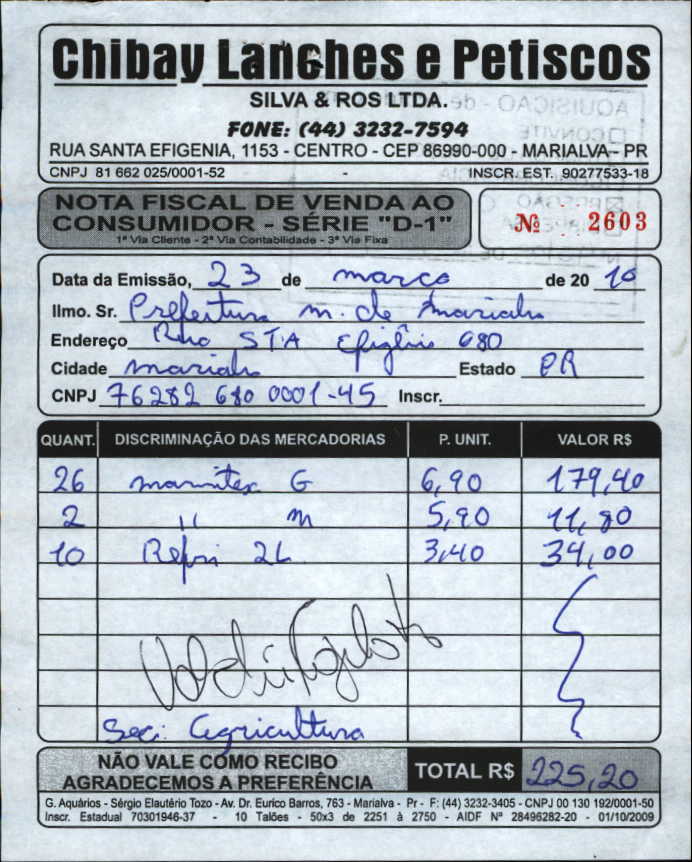 Chibay Lanches e Petiscos
SILVA & ROS LTDA.
FONE: (44) 3232-7594
RUA SANTA EFIGENIA, 1153 - CENTRO - CEP 86990-000 - MARIALVA - PR
CNPJ 81 662 025/0001-52 - INSCR. EST. 90277533-18
NOTA FISCAL DE VENDA AO
CONSUMIDOR - SÉRIE "D-1"
1ª Via Cliente - 2ª Via Contabilidade - 3ª Via Fixa
Nº 2603
Data da Emissão, 23 de março de 20 10
Ilmo. Sr. Prefeitura m. de Marialva
Endereço Rua STA Efigênia 680
Cidade marialva Estado PR
CNPJ 76282 680 0001-45 Inscr.
QUANT. DISCRIMINAÇÃO DAS MERCADORIAS P. UNIT. VALOR R$
26 marmitex G 6,90 179,40
2 " M 5,90 11,80
10 Refri 2L 3,40 34,00
Sec. Agricultura
NÃO VALE COMO RECIBO
AGRADECEMOS A PREFERÊNCIA
TOTAL R$ 225,20
G. Aquários - Sérgio Elautério Tozo - Av. Dr. Eurico Barros, 763 - Marialva - Pr - F: (44) 3232-3405 - CNPJ 00 130 192/0001-50
Inscr. Estadual 70301946-37 - 10 Talões - 50x3 de 2251 à 2750 - AIDF Nº 28496282-20 - 01/10/2009